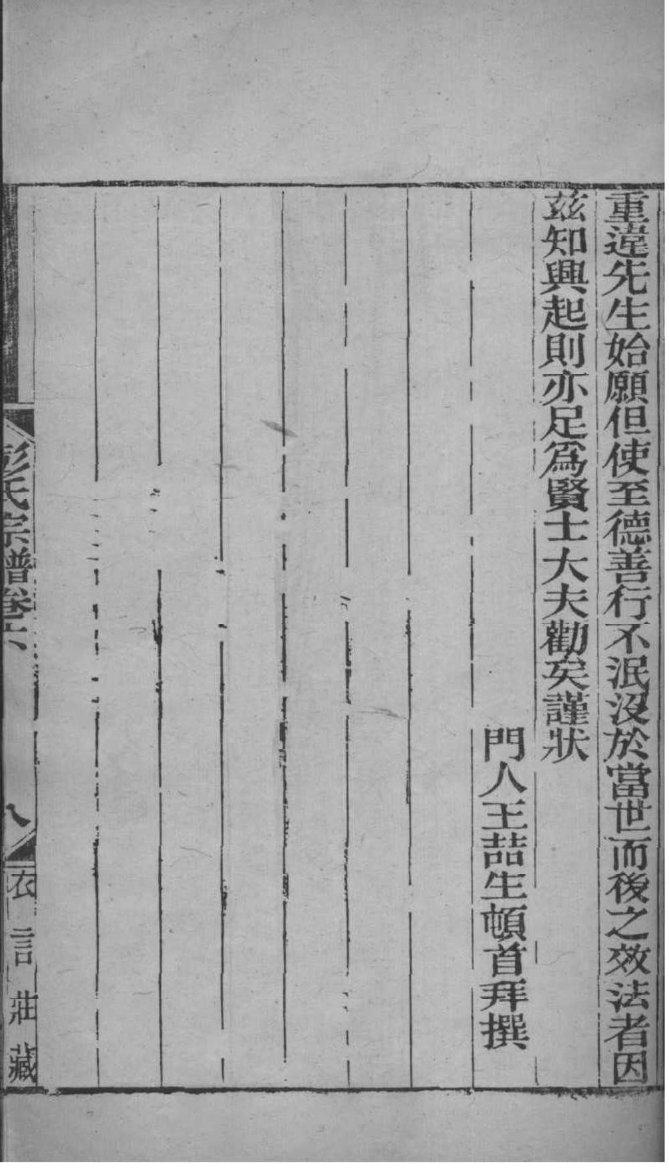 重違先生始願但使至德善行不泯沒於當世而後之效法者因
茲知興起則亦足爲賢士大夫勸矣謹狀
門人王喆生頓首拜撰
彭氏宗譜卷六
八
衣言莊藏